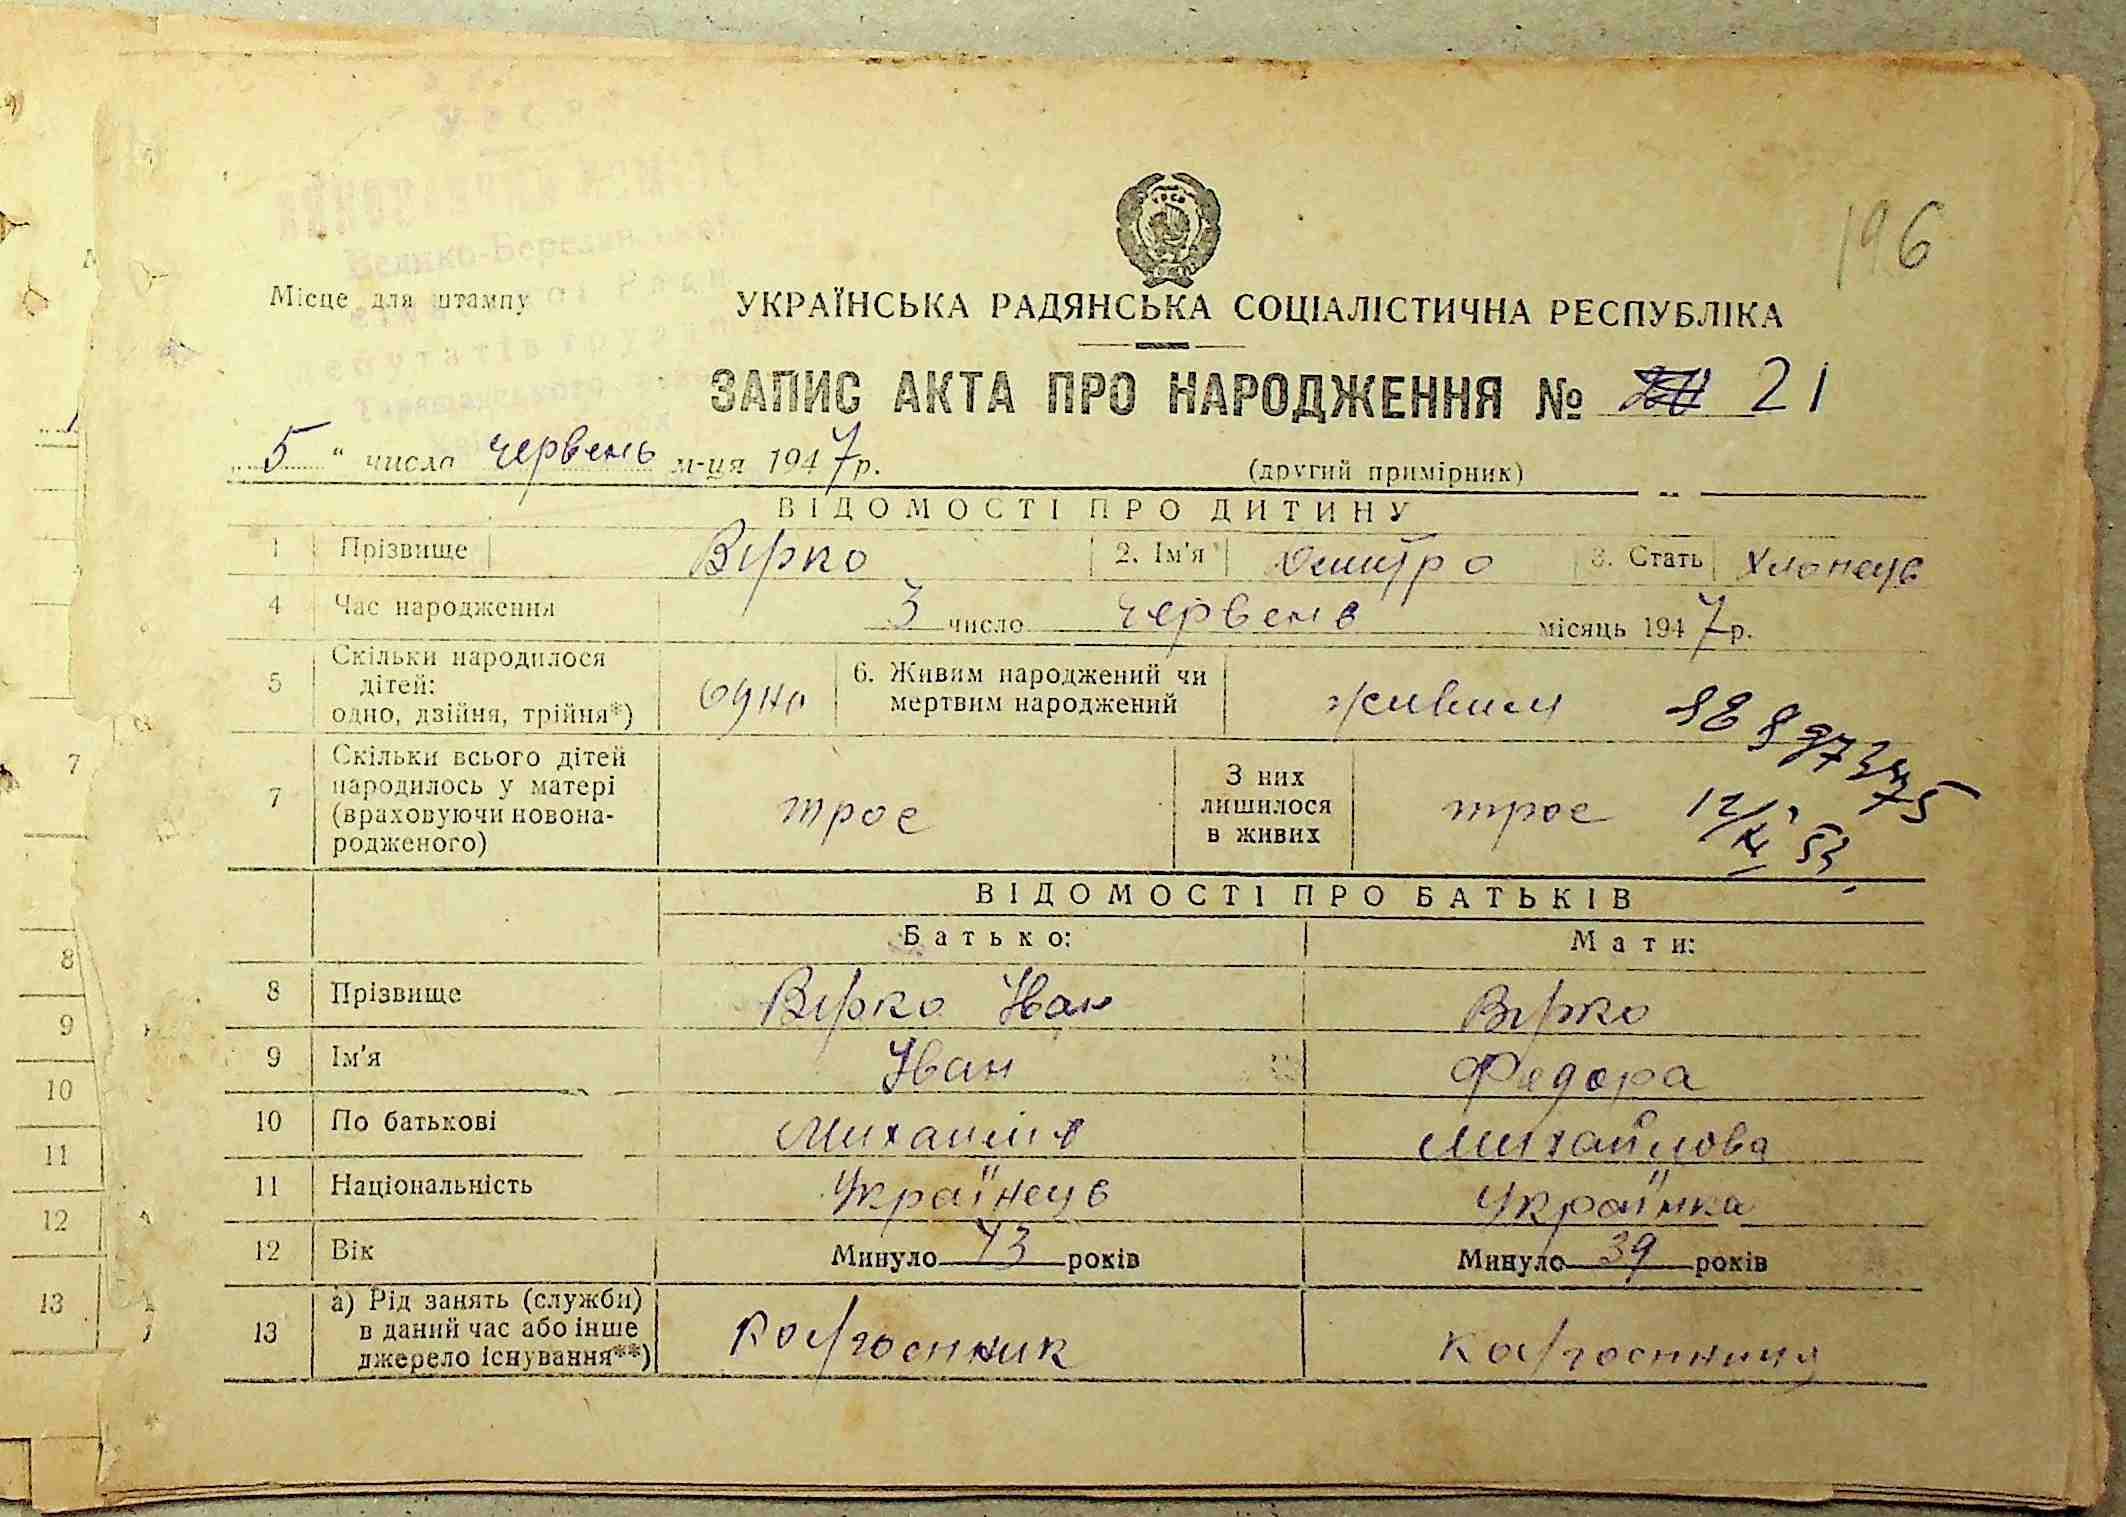 196
Велико-Березан
Місце для штампу
УКРАЇНСЬКА РАДЯНСЬКА СОЦІАЛІСТИЧНА РЕСПУБЛІКА
ЗАПИС АКТА ПРО НАРОДЖЕННЯ № 21
„5“ числа червень м-ця 1947р.
(другий примірник)
ВІДОМОСТІ ПРО ДИТИНУ
1 Прізвище Вірко 2. Ім'я Дмитро 3. Стать Хлопець
4 Час народження 3 число червень місяць 1947р.
5 Скільки народилося дітей: одно, двійня, трійня*) одно 6. Живим народжений чи мертвим народжений живим
7 Скільки всього дітей народилось у матері (враховуючи новонародженого) троє З них лишилося в живих троє
ВІДОМОСТІ ПРО БАТЬКІВ
Батько: Мати:
8 Прізвище Вірко Іван Вірко
9 Ім'я Іван Федора
10 По батькові Михайлів Михайлова
11 Національність Українець Українка
12 Вік Минуло 43 років Минуло 39 років
13 а) Рід занять (служби) в даний час або інше джерело існування**) Колгоспник Колгоспниця
7
8
9
10
11
12
13